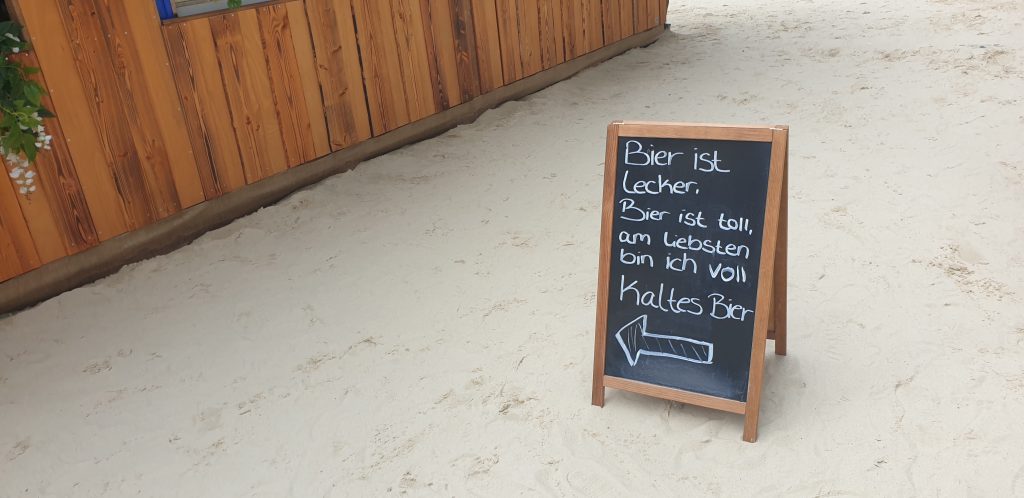 Bier ist
lecker.
Bier ist toll,
am liebsten
bin ich voll
Kaltes Bier